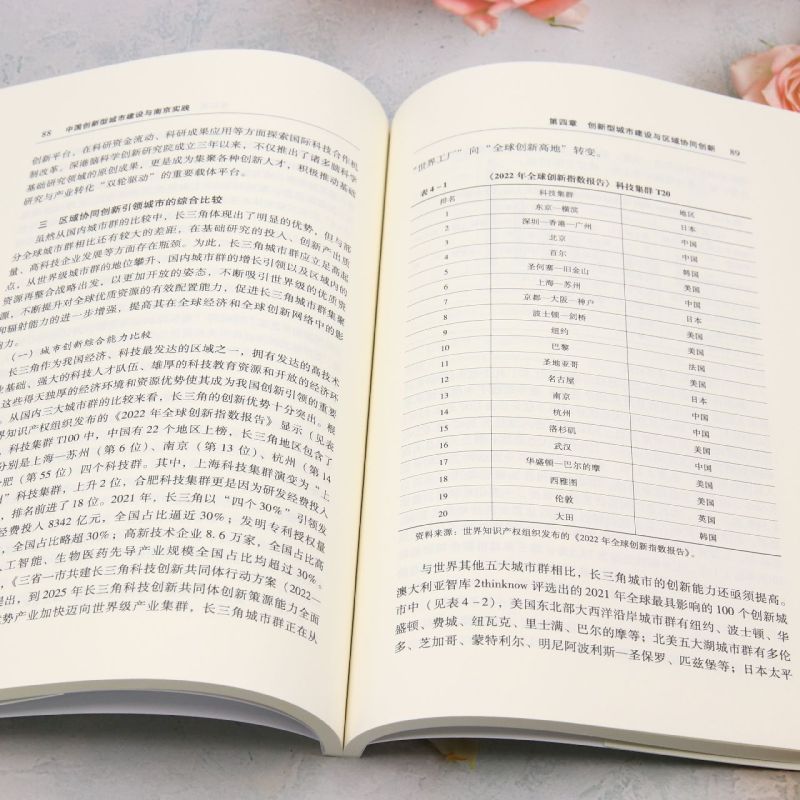 88 中国创新型城市建设与南京实践
创新平台，在科研资金流动、科研成果应用等方面探索国际科技合作机
制改革。深港脑科学创新研究院成立三年以来，不仅推出了诸多脑科学
基础研究领域的原创成果，更是成为集聚各种创新人才，积极推动基础
研究与产业转化“双轮驱动”的重要载体平台。
三 区域协同创新引领城市的综合比较
虽然从国内城市群的比较中，长三角体现出了明显的优势，但与部
分全球城市群相比还有较大的差距，在基础研究的投入、创新产出质
量、高科技企业发展等方面存在瓶颈。为此，长三角城市群应立足高起
点，从世界级城市群的地位攀升、国内城市群的增长引领以及区域内的
资源再整合战略出发，以更加开放的姿态，不断吸引世界级的优质资
源，不断提升对全球优质资源的有效配置能力，促进长三角城市群集聚
和辐射能力的进一步增强，提高其在全球经济和全球创新网络中的影
响力。
（一）城市创新综合能力比较
长三角作为我国经济、科技最发达的区域之一，拥有发达的高技术
业基础、强大的科技人才队伍、雄厚的科技教育资源和开放的经济环
这些得天独厚的经济环境和资源优势使其成为我国创新引领的重要
。从国内三大城市群的比较来看，长三角的创新优势十分突出。根
界知识产权组织发布的《2022 年全球创新指数报告》显示（见表
，科技集群 T100 中，中国有 22 个地区上榜，长三角地区包含了
分别是上海—苏州（第 6 位）、南京（第 13 位）、杭州（第 14
肥（第 55 位）四个科技群。其中，上海科技集群演变为“上
”科技集群，上升 2 位，合肥科技集群更是因为研发经费投入
，排名前进了 18 位。2021 年，长三角以“四个 30%”引领发
经费投入 8342 亿元，全国占比逼近 30%；发明专利授权量
全国占比略超 30%；高新技术企业 8.6 万家，全国占比高
人工智能、生物医药先导产业规模全国占比均超过 30%。
，《三省一市共建长三角科技创新共同体行动方案（2022—
提出，到 2025 年长三角科技创新共同体创新策源能力全面
优势产业加快迈向世界级产业集群，长三角城市群正在从
第四章 创新型城市建设与区域协同创新 89
“世界工厂”向“全球创新高地”转变。
表 4-1 《2022 年全球创新指数报告》科技集群 T20
排名 科技集群 地区
1 东京—横滨 日本
2 深圳—香港—广州 中国
3 北京 中国
4 首尔 韩国
5 圣何塞—旧金山 美国
6 上海—苏州 中国
7 京都—大阪—神户 日本
8 波士顿—剑桥 美国
9 纽约 美国
10 巴黎 法国
11 圣地亚哥 美国
12 名古屋 日本
13 南京 中国
14 杭州 中国
15 洛杉矶 美国
16 武汉 中国
17 华盛顿—巴尔的摩 美国
18 西雅图 美国
19 伦敦 英国
20 大田 韩国
资料来源：世界知识产权组织发布的《2022 年全球创新指数报告》。
与世界其他五大城市群相比，长三角城市的创新能力还亟须提高。
澳大利亚智库 2thinknow 评选出的 2021 年全球最具影响的 100 个创新城
市中（见表 4-2），美国东北部大西洋沿岸城市群有纽约、波士顿、华
盛顿、费城、纽瓦克、里士满、巴尔的摩等；北美五大湖城市群有多伦
多、芝加哥、蒙特利尔、明尼阿波利斯—圣保罗、匹兹堡等；日本太平